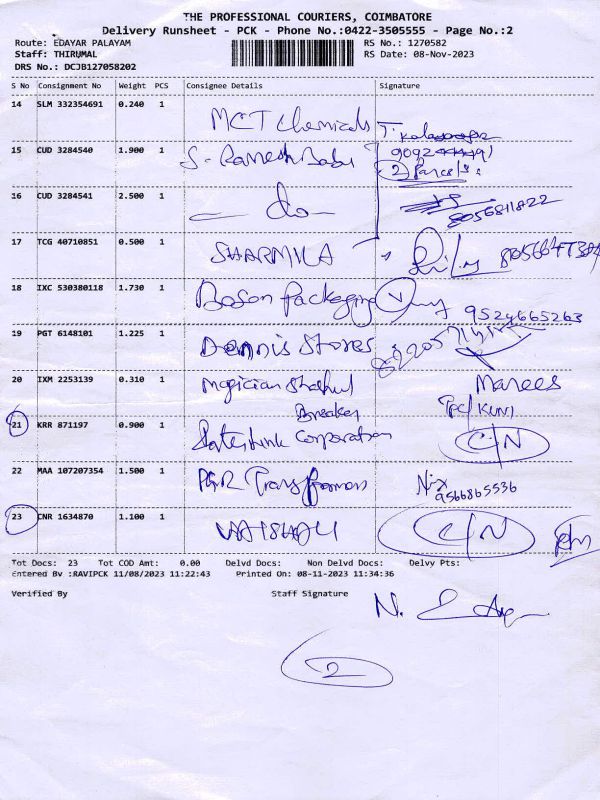 THE PROFESSIONAL COURIERS, COIMBATORE
Delivery Runsheet - PCK - Phone No.:0422-3505555 - Page No.:2
Route: EDAYAR PALAYAM RS No.: 1270582
Staff: THIRUMAL RS Date: 08-Nov-2023
DRS No.: DCJB127058202
S No Consignment No Weight PCS Consignee Details Signature
14 SLM 332354691 0.240 1 MCT Chemicals
15 CUD 3284540 1.900 1 S. Ramesh Babu
2 Parcels
16 CUD 3284541 2.500 1 — do — 8056811822
17 TCG 40710851 0.500 1 SHARMILA
18 IXC 530380118 1.730 1 Boson Packaging 9524665263
19 PGT 6148101 1.225 1 Dennis Stores
20 IXM 2253139 0.310 1 Magician Marees
21 KRR 871197 0.900 1 Corporation C/N
22 MAA 107207354 1.500 1 Transformers 9566865536
23 CNR 1634870 1.100 1 VAISHALI C/N
Tot Docs: 23 Tot COD Amt: 0.00 Delvd Docs: Non Delvd Docs: Delvy Pts:
Entered By :RAVIPCK 11/08/2023 11:22:43 Printed On: 08-11-2023 11:34:36
Verified By Staff Signature
2